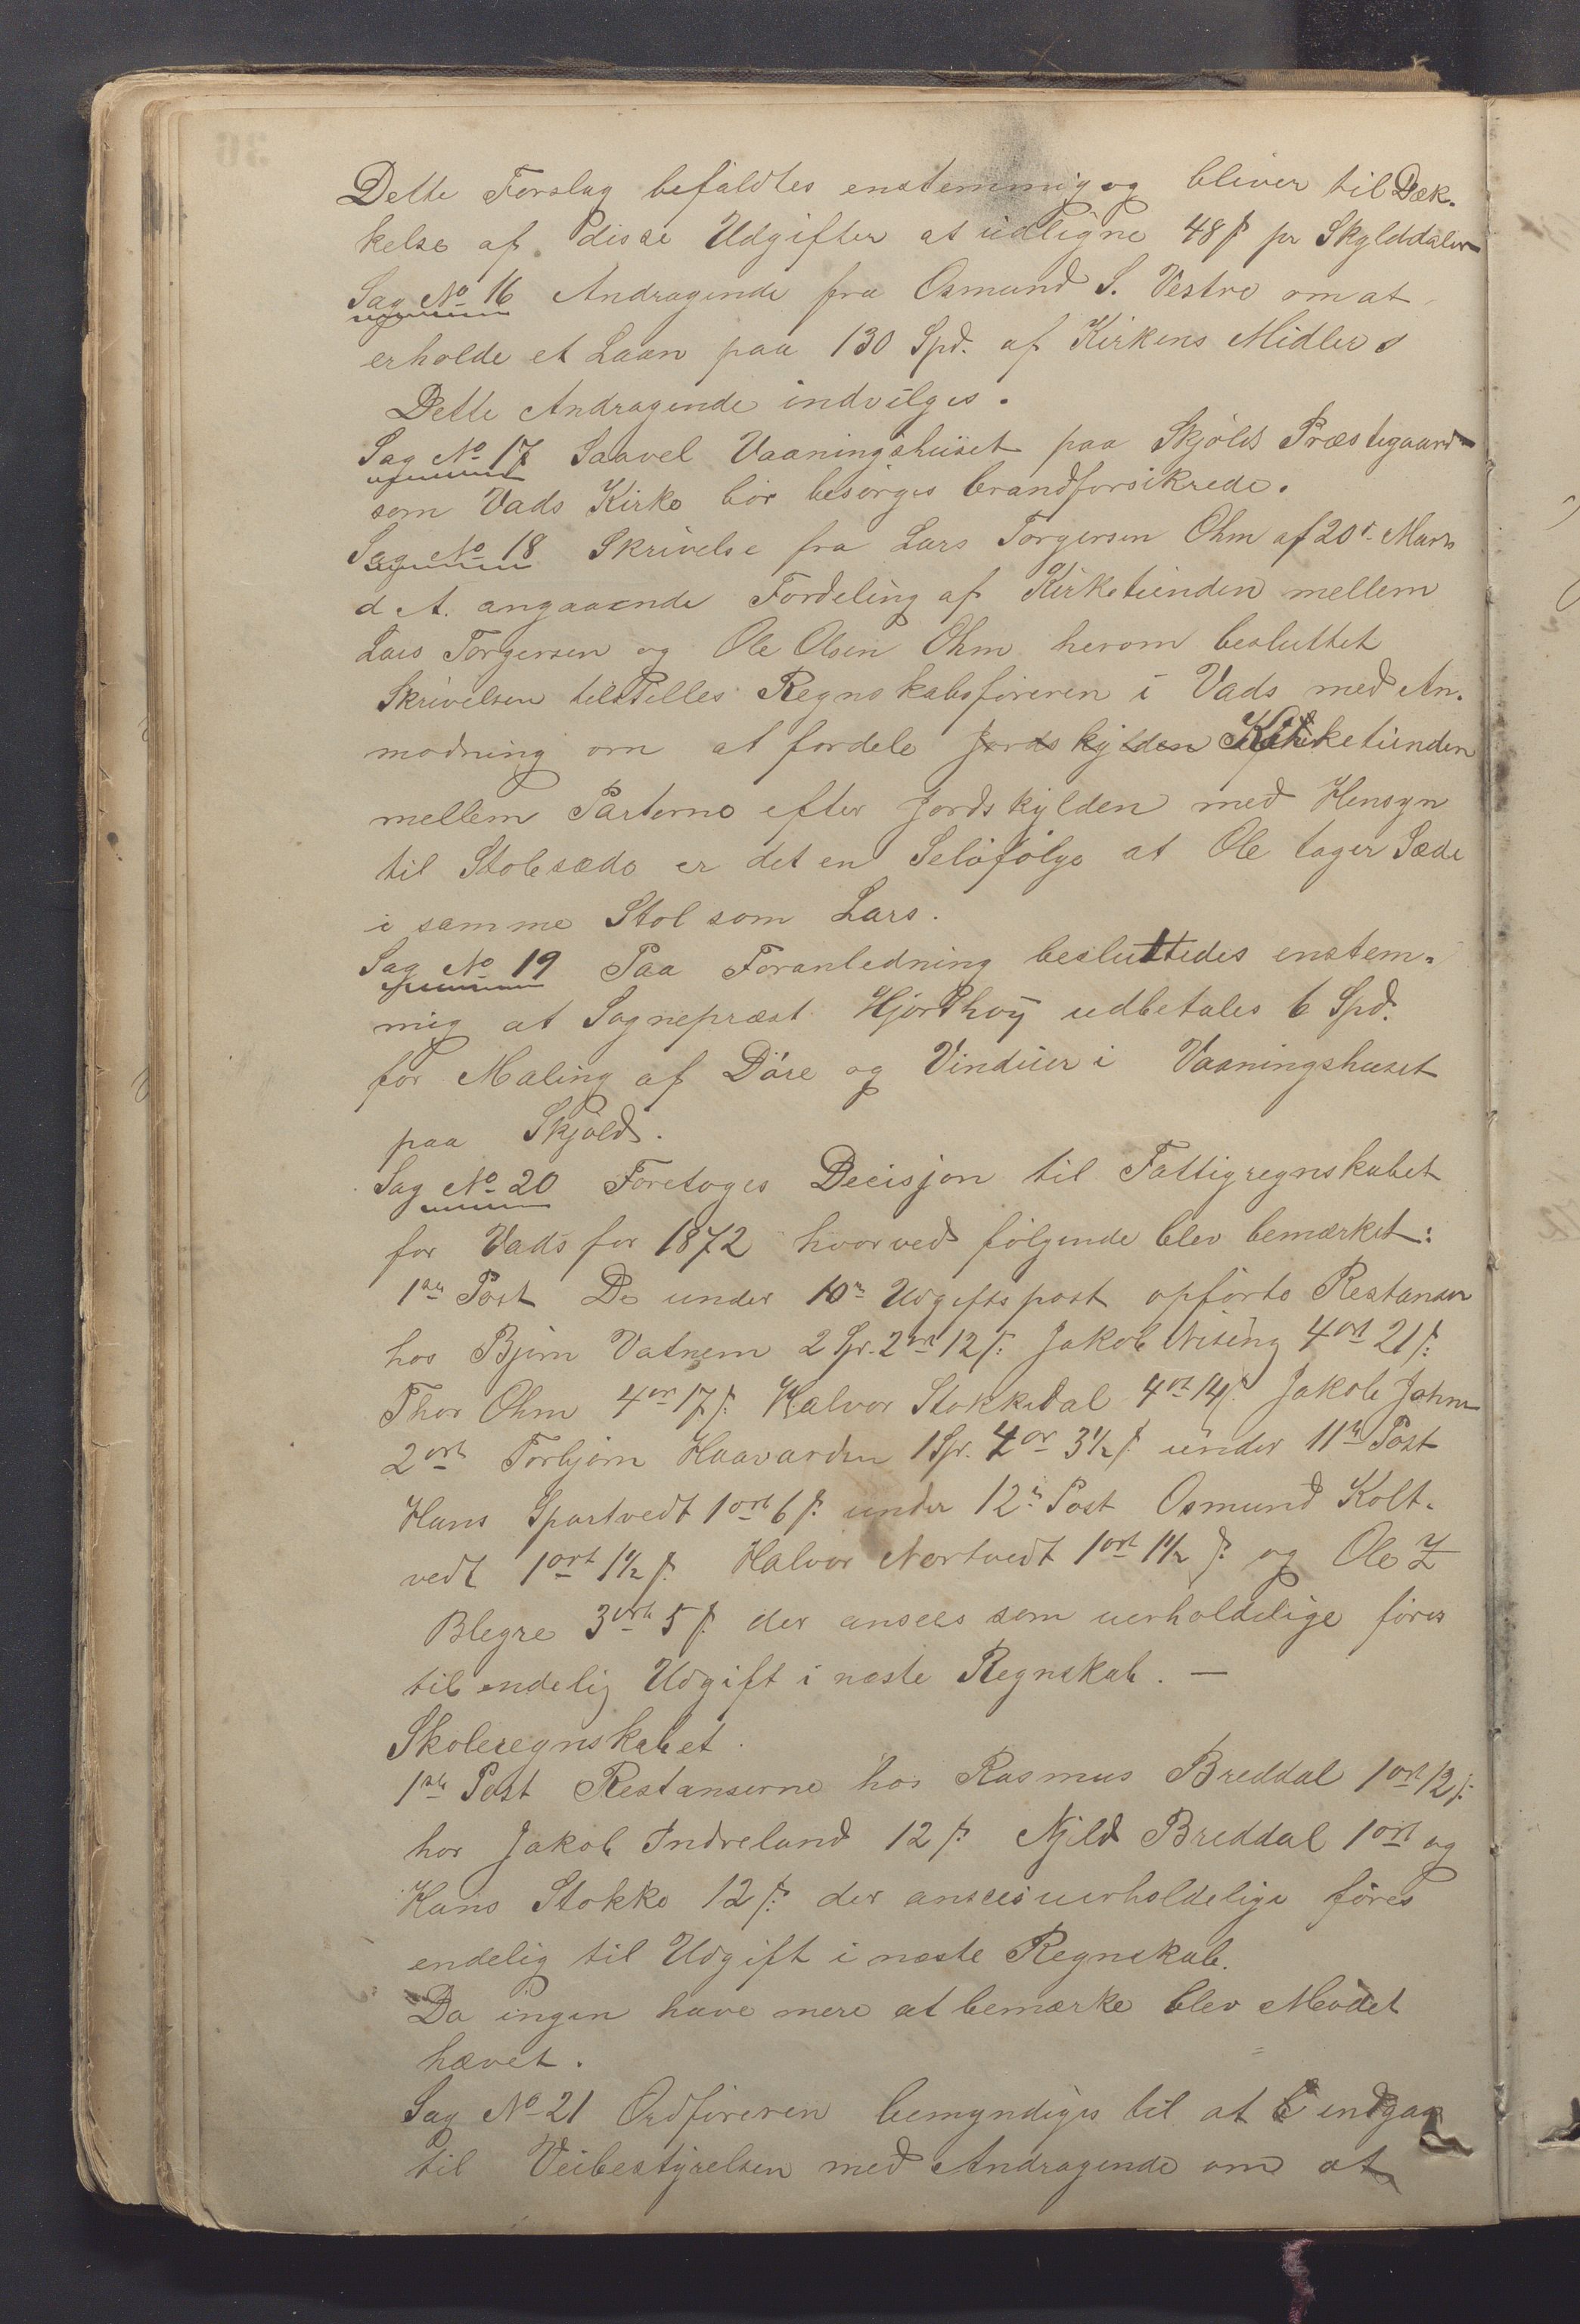 Dette Forslag befaldtes enstemmig og bliver til Dæk-
kelse af disse Udgifter at udligne 48 ß pr Skylddaler
Sag No 16 Andragende fra Osmund S. Vestre om at
erholde et Laan paa 130 Spd. af Kirkens Midler
Dette Andragende indvilges.
Sag No 17 Saavel Vaaningshuset paa Skjolds Præstegaard
som Vads Kirke bør besørges brandforsikrede.
Sag No 18 Skrivelse fra Lars Torgersen Ohm af 20d Marts
d A. angaaende Fordeling af Kirketienden mellem
Lars Torgersen og Ole Olsen Ohm herom besluttet
Skrivelsen tilstilles Regnskabsføreren i Vads med An-
modning om at fordele Jordskylden Kirketienden
mellem Parterne efter Jordskylden med Hensyn
til Stolesæde er det en Selvfølge at Ole tager Sæde
i samme Stol som Lars.
Sag No 19 Paa Foranledning besluttedes enstem-
mig at Sognepræst Hjorthøy udbetales 6 Spd.
for Maling af Døre og Vinduer i Vaaningshuset
paa Skjold.
Sag No 20 Foretoges Decisjon til Fattigregnskabet
for Vads for 1872 hvorved følgende blev bemærket:
1ste Post De under 10de Udgiftspost opførte Restanser
hos Bjørn Vatnem 2 Sp. 2 ort 12 ß. Jakob 4 ort 21 ß.
Thor Ohm 4 ort 17 ß. Halvor Stokkedal 4 ort 14 ß. Jakob Johns
2 ort Torbjørn Haavardsn 1 Sp. 4 ort 3 1/2 ß. under 11te Post
Hans Spartvedt 1 ort 6 ß. under 12te Post Osmund Kolt-
vedt 1 ort 1 1/2 ß. Halvor Nortvedt 1 ort 1 1/2 ß. og Ole
Blegre 3 ort 5 ß. der ansees som uerholdelige føres
til endelig Udgift i næste Regnskab. —
Skoleregnskabet.
1ste Post Restanserne hos Rasmus Breddal 1 ort 12 ß.
hos Jakob Indreland 12 ß. Njeld Breddal 1 ort og
Hans Stokke 12 ß. der ansees uerholdelige føres
endelig til Udgift i næste Regnskab.
Da ingen have mere at bemærke blev Mødet
hævet.
Sag No 21 Ordføreren bemyndiges til at indgaa
til Veibestyrelsen med Andragende om at